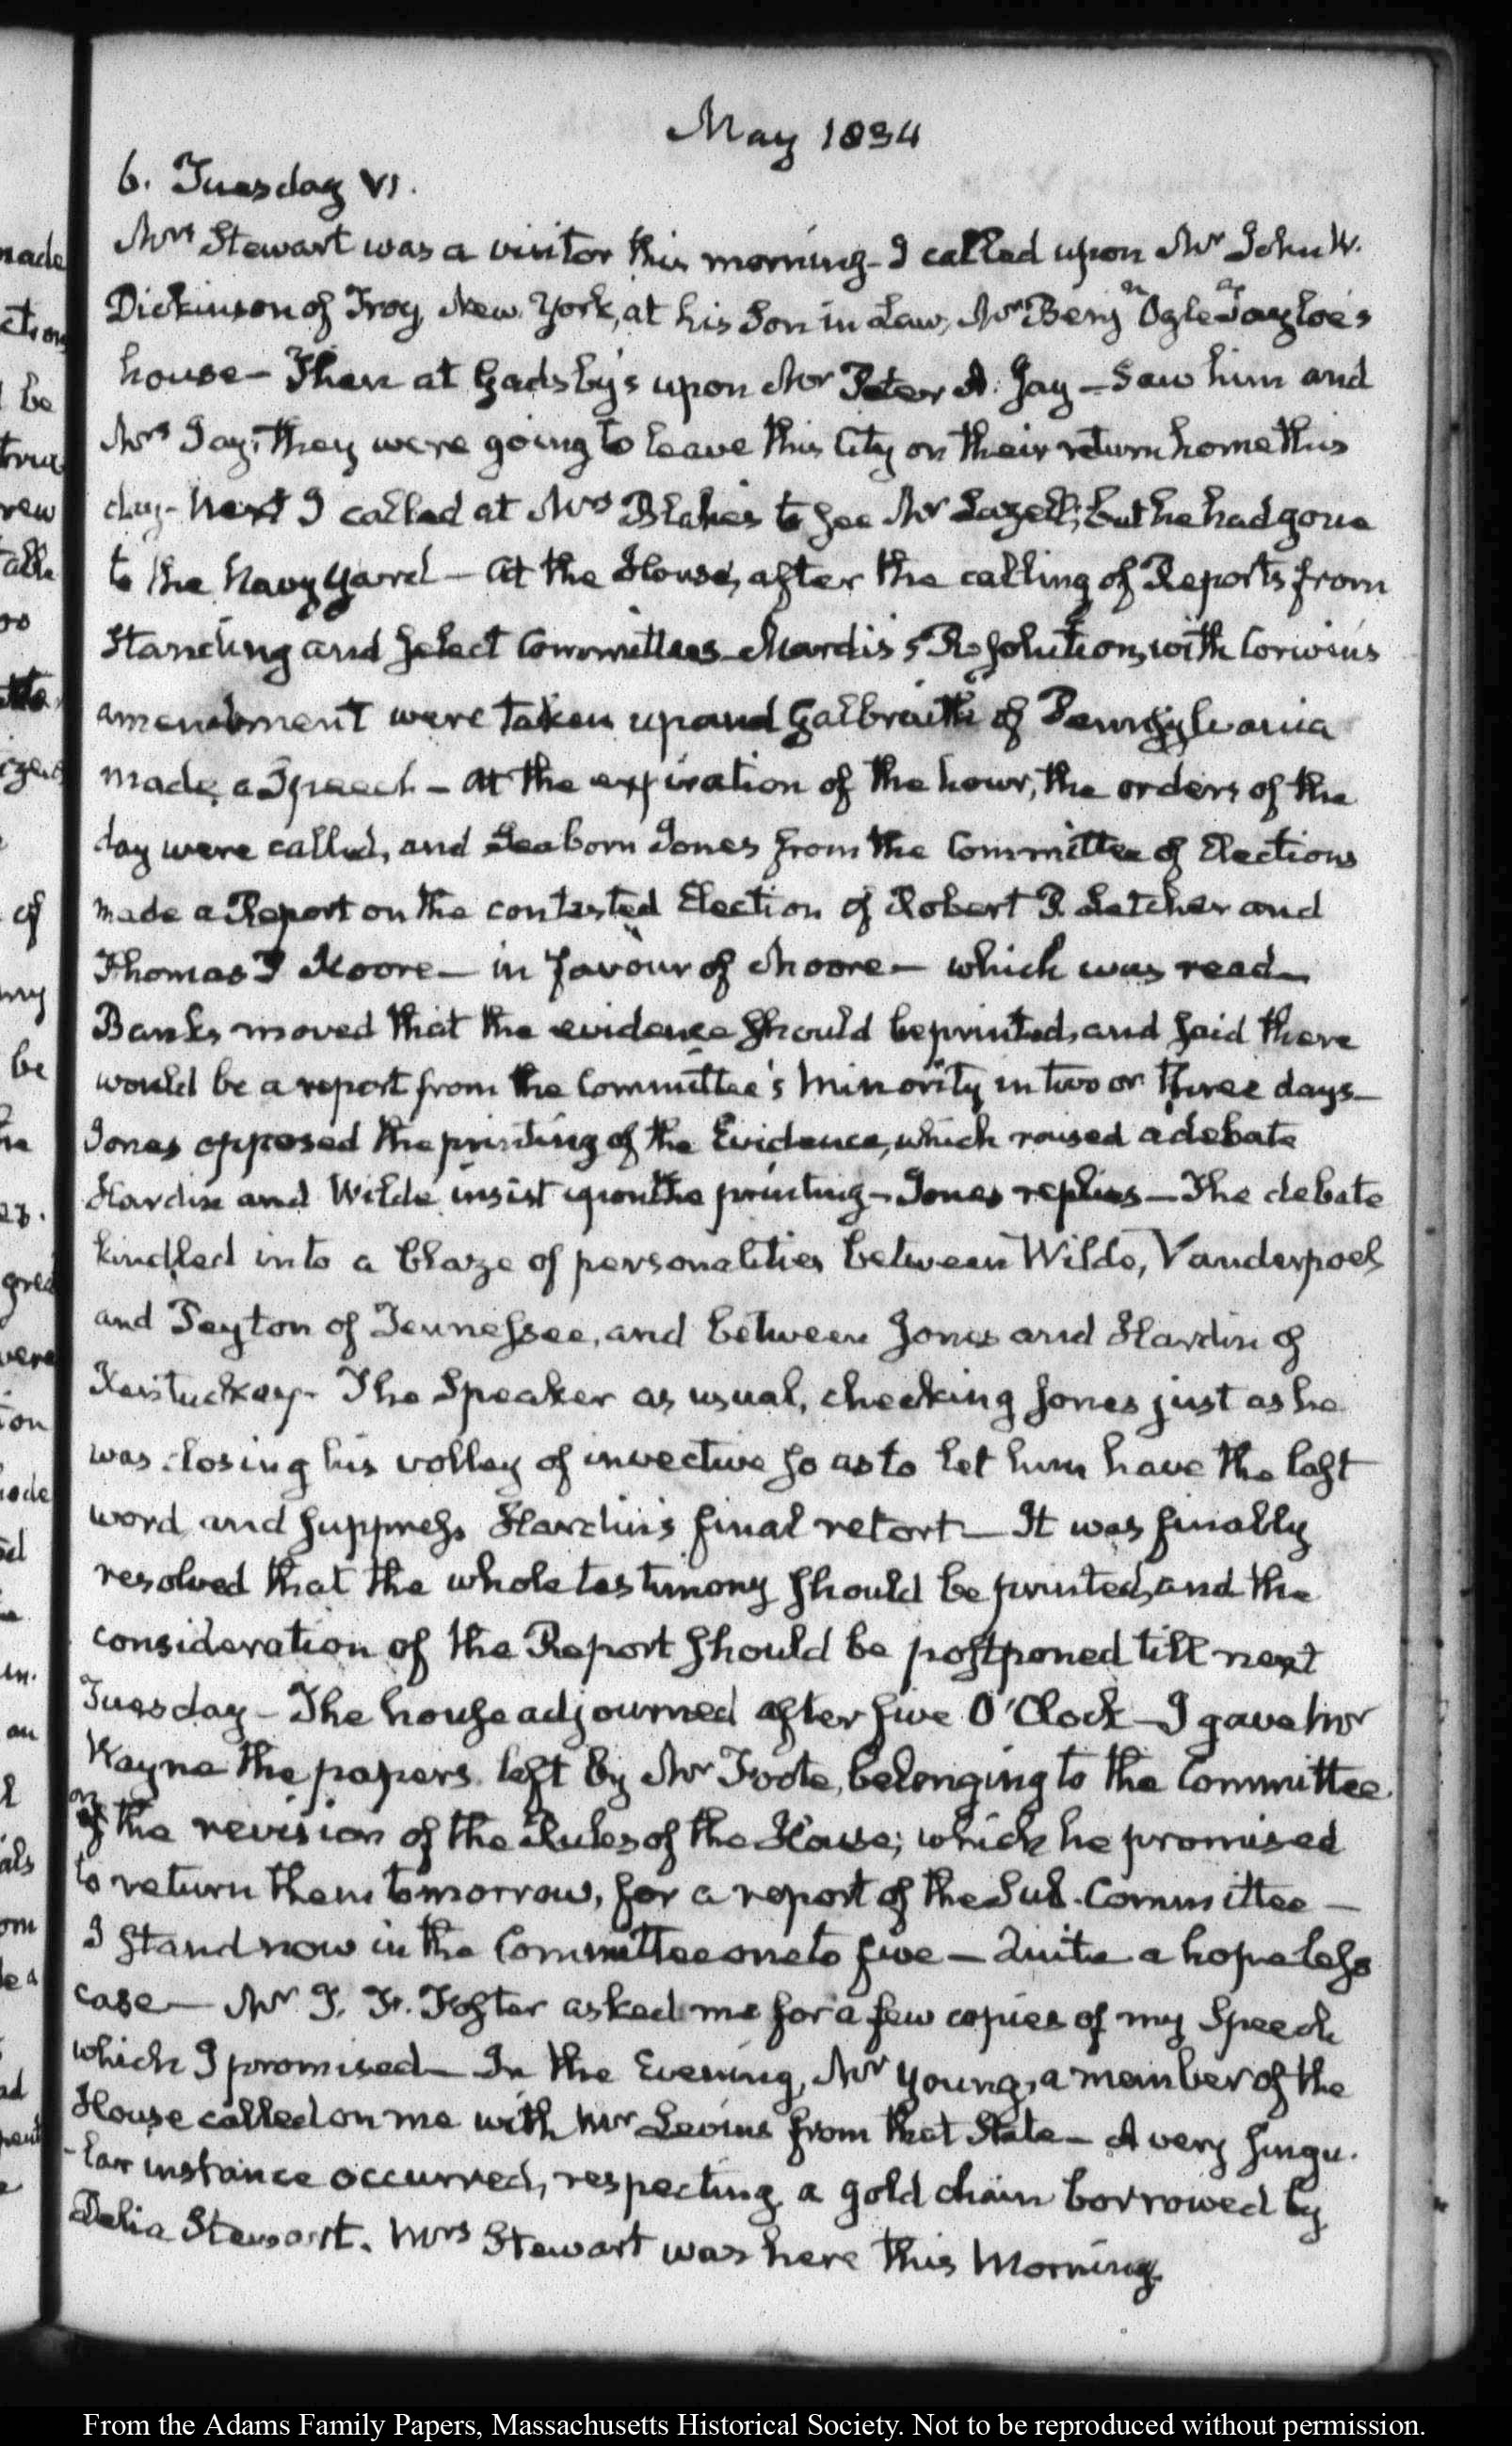 May 1834
6. Tuesday VI.
Mrs Stewart was a visitor this morning - I called upon Mr John W.
Dickinson of Troy New York, at his Son in Law, Mr Benjn Ogle Tayloe's
house - Then at Gadsby's upon Mr Peter A. Jay - Saw him and
Mrs Jay, they were going to leave this City on their return home this
day - Next I called at Mrs Blake's to see Mr Lazell; but he had gone
to the Navy Yard - At the House, after the calling of Reports from
Standing and Select Committees Mardis's Resolution, with Corwin's
amendment were taken up and Galbraith of Pennsylvania
made a Speech - at the expiration of the hour, the orders of the
day were called, and Seaborn Jones from the Committee of Elections
made a Report on the contested Election of Robert P. Letcher and
Thomas P Moore - in favour of Moore - which was read
Banks moved that the evidence should be printed, and said there
would be a report from the Committee's Minority in two or three days -
Jones opposed the printing of the Evidence, which roused a debate
Hardin and Wilde insist upon the printing - Jones replies - The debate
kindled into a blaze of personalities between Wilde, Vanderpoel
and Peyton of Tennessee, and between Jones and Hardin of
Kentuckey - The Speaker as usual, checking Jones just as he
was closing his volley of invective so as to let him have the last
word and suppress Hardin's final retort - It was finally
resolved that the whole testimony should be printed, and the
consideration of the Report should be postponed till next
Tuesday - The house adjourned after five O'Clock - I gave Mr
Wayne the papers left by Mr Foote, belonging to the Committee
on the revision of the Rules of the House; which he promised
to return them tomorrow, for a report of the Sub. Committee -
I stand now in the Committee one to five - Quite a hopeless
case - Mr T. F. Foster asked me for a few copies of my Speech
which I promised - In the Evening, Mr Young, a member of the
House called on me with Mr from that State - A very singu-
-lar instance occurred, respecting a gold chain borrowed by
Delia Stewart. Mrs Stewart was here this Morning.
nade
be
rew
of
my
be
ion
From the Adams Family Papers, Massachusetts Historical Society. Not to be reproduced without permission.